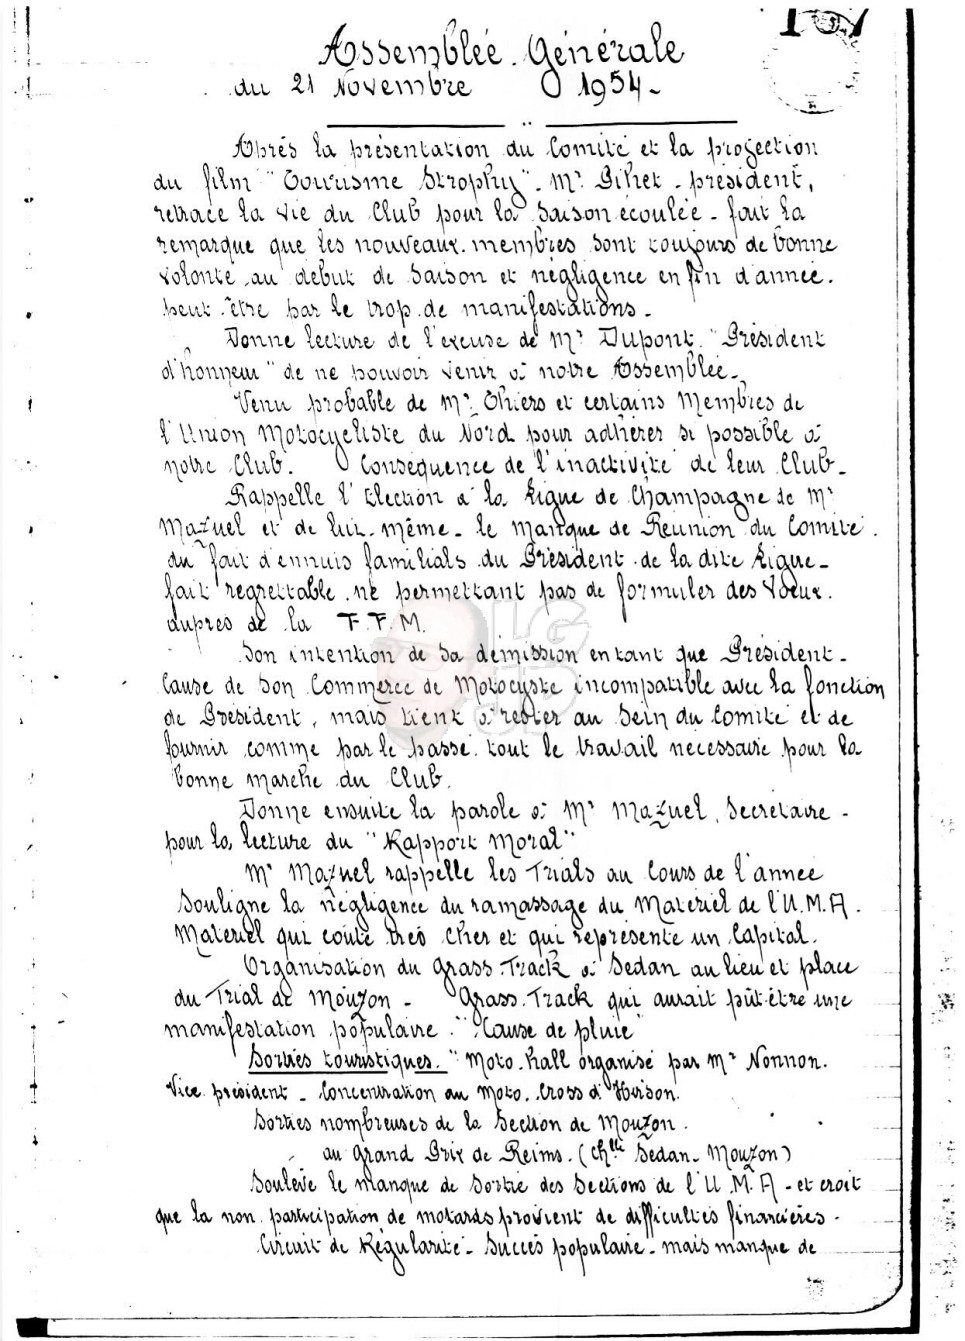 Assemblée Générale
du 21 Novembre 1954-
Après la présentation du Comité et la projection
du film "Tourisme Strophy". Mr. Gihet - président,
retrace la vie du Club pour la saison écoulée - fait la
remarque que les nouveaux membres sont toujours de bonne
volonté au début de saison et négligence en fin d'année.
peut-être par le trop de manifestations.
Donne lecture de l'excuse de Mr Dupont "Président
d'honneur" de ne pouvoir venir à notre Assemblée.
Venu probable de Mr. Thiers et certains Membres de
l'Union Motocycliste du Nord pour adhérer si possible à
notre Club. Conséquence de l'inactivité de leur Club-
Rappelle l'Election à la Ligue de Champagne de Mr
Mazuel et de lui-même - le manque de Réunion du Comité.
du fait d'ennuis familials du Président de la dite Ligue-
fait regrettable ne permettant pas de formuler des Voeux.
auprès de la F.F.M.
Son intention de sa démission entant que Président-
Cause de son Commerce de Motocyste incompatible avec la fonction
de Président, mais tient à rester au sein du Comité et de
fournir comme par le passé tout le travail nécessaire pour la
bonne marche du Club.
Donne ensuite la parole à Mr Mazuel, Secrétaire -
pour la lecture du "Rapport Moral"
Mr Mazuel rappelle les Trials au Cours de l'année
Souligne la négligence du ramassage du Matériel de l'U.M.A.
Matériel qui coute très cher et qui représente un Capital.
Organisation du Grass-Track à Sedan au lieu et place
du Trial de Mouzon - Grass-Track qui aurait pût être une
manifestation populaire. "Cause de pluie"
Sorties touristiques. "Moto-hall organisé par Mr Nonnon.
Vice président - Concentration au Moto-Cross d'Hirson.
Sorties nombreuses de la Section de Mouzon.
au Grand Prix de Reims. (Chlle Sedan-Mouzon)
Soulève le manque de Sortie des Sections de l'U.M.A - et croit
que la non participation de motards provient de difficultés financières.
Circuit de Régularité - Succès populaire - mais manque de